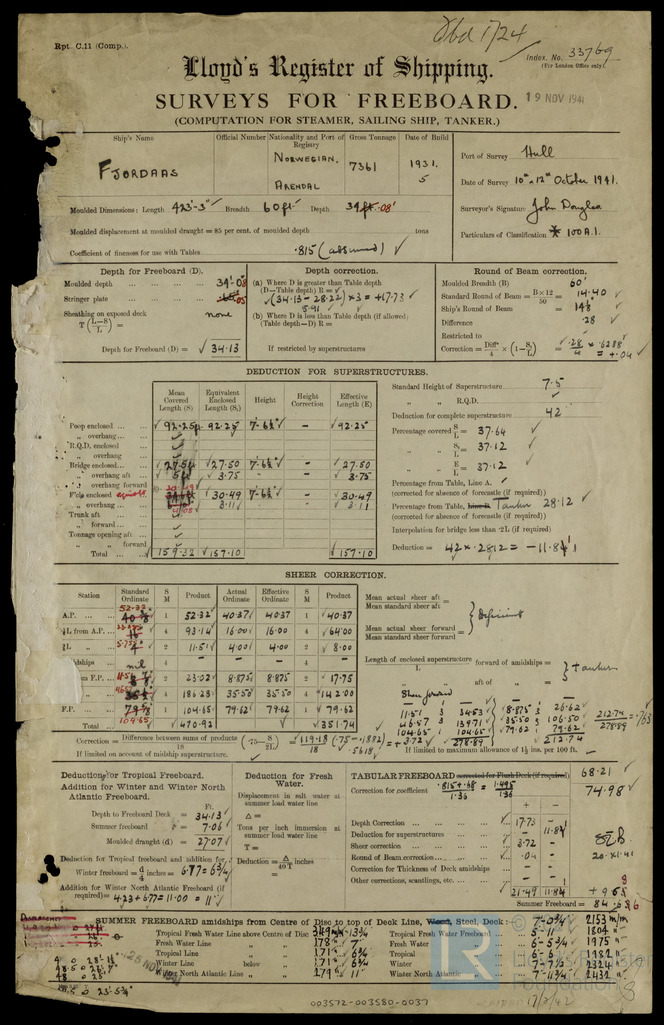 Rpt. C.11 (Comp.).
Index. No. 33769
(For London Office only).
Lloyd's Register of Shipping.
SURVEYS FOR FREEBOARD.
19 NOV 1941
(COMPUTATION FOR STEAMER, SAILING SHIP, TANKER.)
Ship's Name
Official Number
Nationality and Port of Registry
Gross Tonnage
Date of Build
FJORDAAS
NORWEGIAN.
ARENDAL
7361
1931.
5
Port of Survey Hull
Date of Survey 10th & 12th October 1941.
Surveyor's Signature John Douglas
Particulars of Classification 100 A.1.
Moulded Dimensions: Length 423'-3" Breadth 60 ft Depth 34 ft. .08'
Moulded displacement at moulded draught = 85 per cent. of moulded depth tons
Coefficient of fineness for use with Tables .815 (assumed)
Depth for Freeboard (D).
Moulded depth 34'.08
Stringer plate .05
Sheathing on exposed deck none
T (L–S / L) =
Depth for Freeboard (D) = 34.13
Depth correction.
(a) Where D is greater than Table depth
(D–Table depth) R =
(34.13 – 28.22) × 3 = +17.73
5.91
(b) Where D is less than Table depth (if allowed)
(Table depth–D) R =
If restricted by superstructures
Round of Beam correction.
Moulded Breadth (B) 60'
Standard Round of Beam = B×12 / 50 = 14.40
Ship's Round of Beam =
Difference .28
Restricted to
Correction = Diff. / 4 × (1 – S₁ / L) = .28 / 4 × .6288 = +.04
DEDUCTION FOR SUPERSTRUCTURES.
Mean Covered Length (S)
Equivalent Enclosed Length (S₁)
Height
Height Correction
Effective Length (E)
Poop enclosed 92.25 92.25 7'-6½" – 92.25
„ overhang
R.Q.D. enclosed
„ overhang
Bridge enclosed 27.54 27.50 7'-6½" – 27.50
„ overhang aft 3.75 3.75
„ overhang forward
F'cle enclosed 30.49 7'-6½" – 30.49
„ overhang 3.11 3.11
Trunk aft
„ forward
Tonnage opening aft
„ „ forward
Total 159.32 157.10 157.10
Standard Height of Superstructure 7.5
„ „ R.Q.D.
Deduction for complete superstructure 42
Percentage covered S / L = 37.64
„ „ S₁ / L = 37.12
„ „ E / L = 37.12
Percentage from Table, Line A.
(corrected for absence of forecastle (if required))
Percentage from Table, Line B. Tanker 28.12
(corrected for absence of forecastle (if required))
Interpolation for bridge less than ·2L (if required)
Deduction = 42 × .2812 = –11.81
SHEER CORRECTION.
Station
Standard Ordinate
S M
Product
Actual Ordinate
Effective Ordinate
S M
Product
A.P. 52.32 1 52.32 40.37 40.37 1 40.37
⅙L from A.P. 4 93.14 16.00 16.00 4 64.00
⅓L 2 11.51 4.00 4.00 2 8.00
nil 4 – – – 4 –
F.P. 2 23.02 8.875 8.875 2 17.75
4 186.23 35.50 35.50 4 142.00
F.P. 104.65 1 104.65 79.62 79.62 1 79.62
Total 470.92 351.74
Mean actual sheer aft / Mean standard sheer aft =
Mean actual sheer forward / Mean standard sheer forward =
} Deficient
Length of enclosed superstructure / L forward of amidships =
„ „ aft of „ =
} Tankers
Sheer forward
11.51 3 34.53
46.57 3 139.71
104.65 1 104.65
278.89
8.875 3 26.62
35.50 3 106.50
79.62 79.62
212.74
212.74 / 278.89 = .763
Correction = Difference between sums of products / 18 (·75 – S / 2L) = 119.18 / 18 (.75 – .1882) .5618 = +3.72
If limited on account of midship superstructure.
If limited to maximum allowance of 1½ ins. per 100 ft.
Deduction for Tropical Freeboard.
Addition for Winter and Winter North Atlantic Freeboard.
Ft.
Depth to Freeboard Deck = 34.13
Summer freeboard = 7.06
Moulded draught (d) = 27.07
Deduction for Tropical freeboard and addition for
Winter freeboard = d / 4 inches = 6.77 = 6¾"
Addition for Winter North Atlantic Freeboard (if required) = 4.23 + 6.77 = 11.00 = 11"
Deduction for Fresh Water.
Displacement in salt water at summer load water line
Δ =
Tons per inch immersion at summer load water line
T =
Deduction = Δ / 40T inches
=
TABULAR FREEBOARD corrected for Flush Deck (if required) 68.21
Correction for coefficient .815 + .68 / 1.36 = 1.495 / 1.36 74.98
+ –
Depth Correction 17.73 –
Deduction for superstructures – 11.81
Sheer correction 3.72 –
Round of Beam correction .04 –
Correction for Thickness of Deck amidships – –
Other corrections, scantlings, etc. – –
21.49 11.81
Summer Freeboard =
SUMMER FREEBOARD amidships from Centre of Disc to top of Deck Line, Wood, Steel, Deck:— 7'-0¾" 2153 m/m
Tropical Fresh Water Line above Centre of Disc 13¾" Tropical Fresh Water Freeboard 5'-11" 1804
Fresh Water Line „ „ 178 7" Fresh Water „ 6'-5¾" 1975
Tropical Line „ „ 171 6¾" Tropical „ 6'-6" 1982
Winter Line below „ 171 6¾" Winter „ 7'-7½" 2324
Winter North Atlantic Line „ „ 279 11" Winter North Atlantic „ 7'-11¾" 2432
© Lloyd's Register Foundation
003572-003580-0037